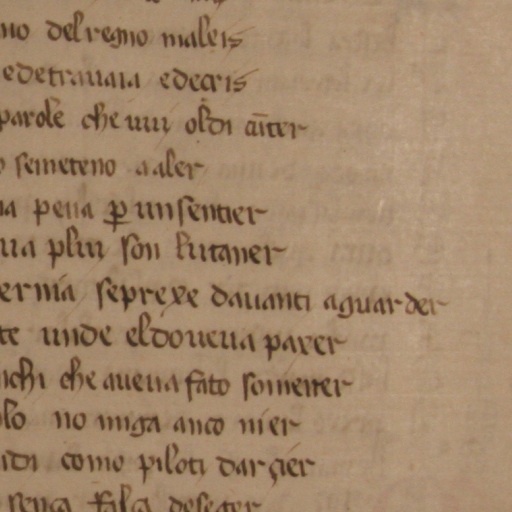 no del regno maleis
e de travaia e de cris
parole che vui oldi a iter
semeteno a aler
na pena p un sentier
va plui son lutaner
se prexe davanti a guarder
te unde el doveva paxer
nchi che aveva fato somener
lo no miga anco nier
idi como piloti dar çier